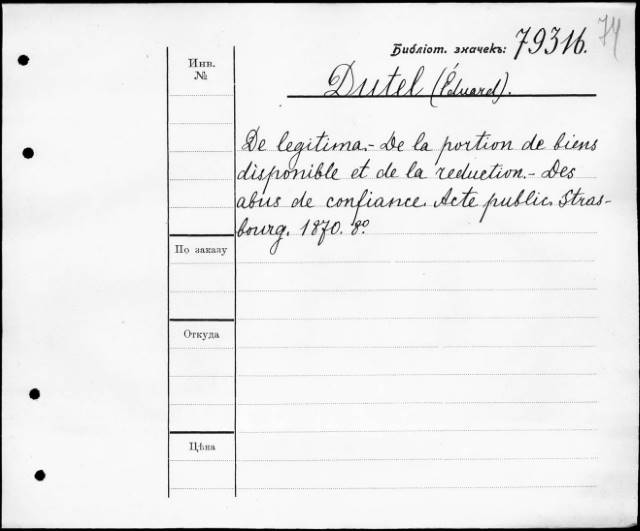 74
Библіот. значекъ: 79316.
Инв.
№
Dutel (Éduard).
De legitima.- De la portion de biens
disponible et de la reduction.- Des
abus de confiance. Acte public. Stras-
bourg. 1870. 8º
По заказу
Откуда
Цѣна